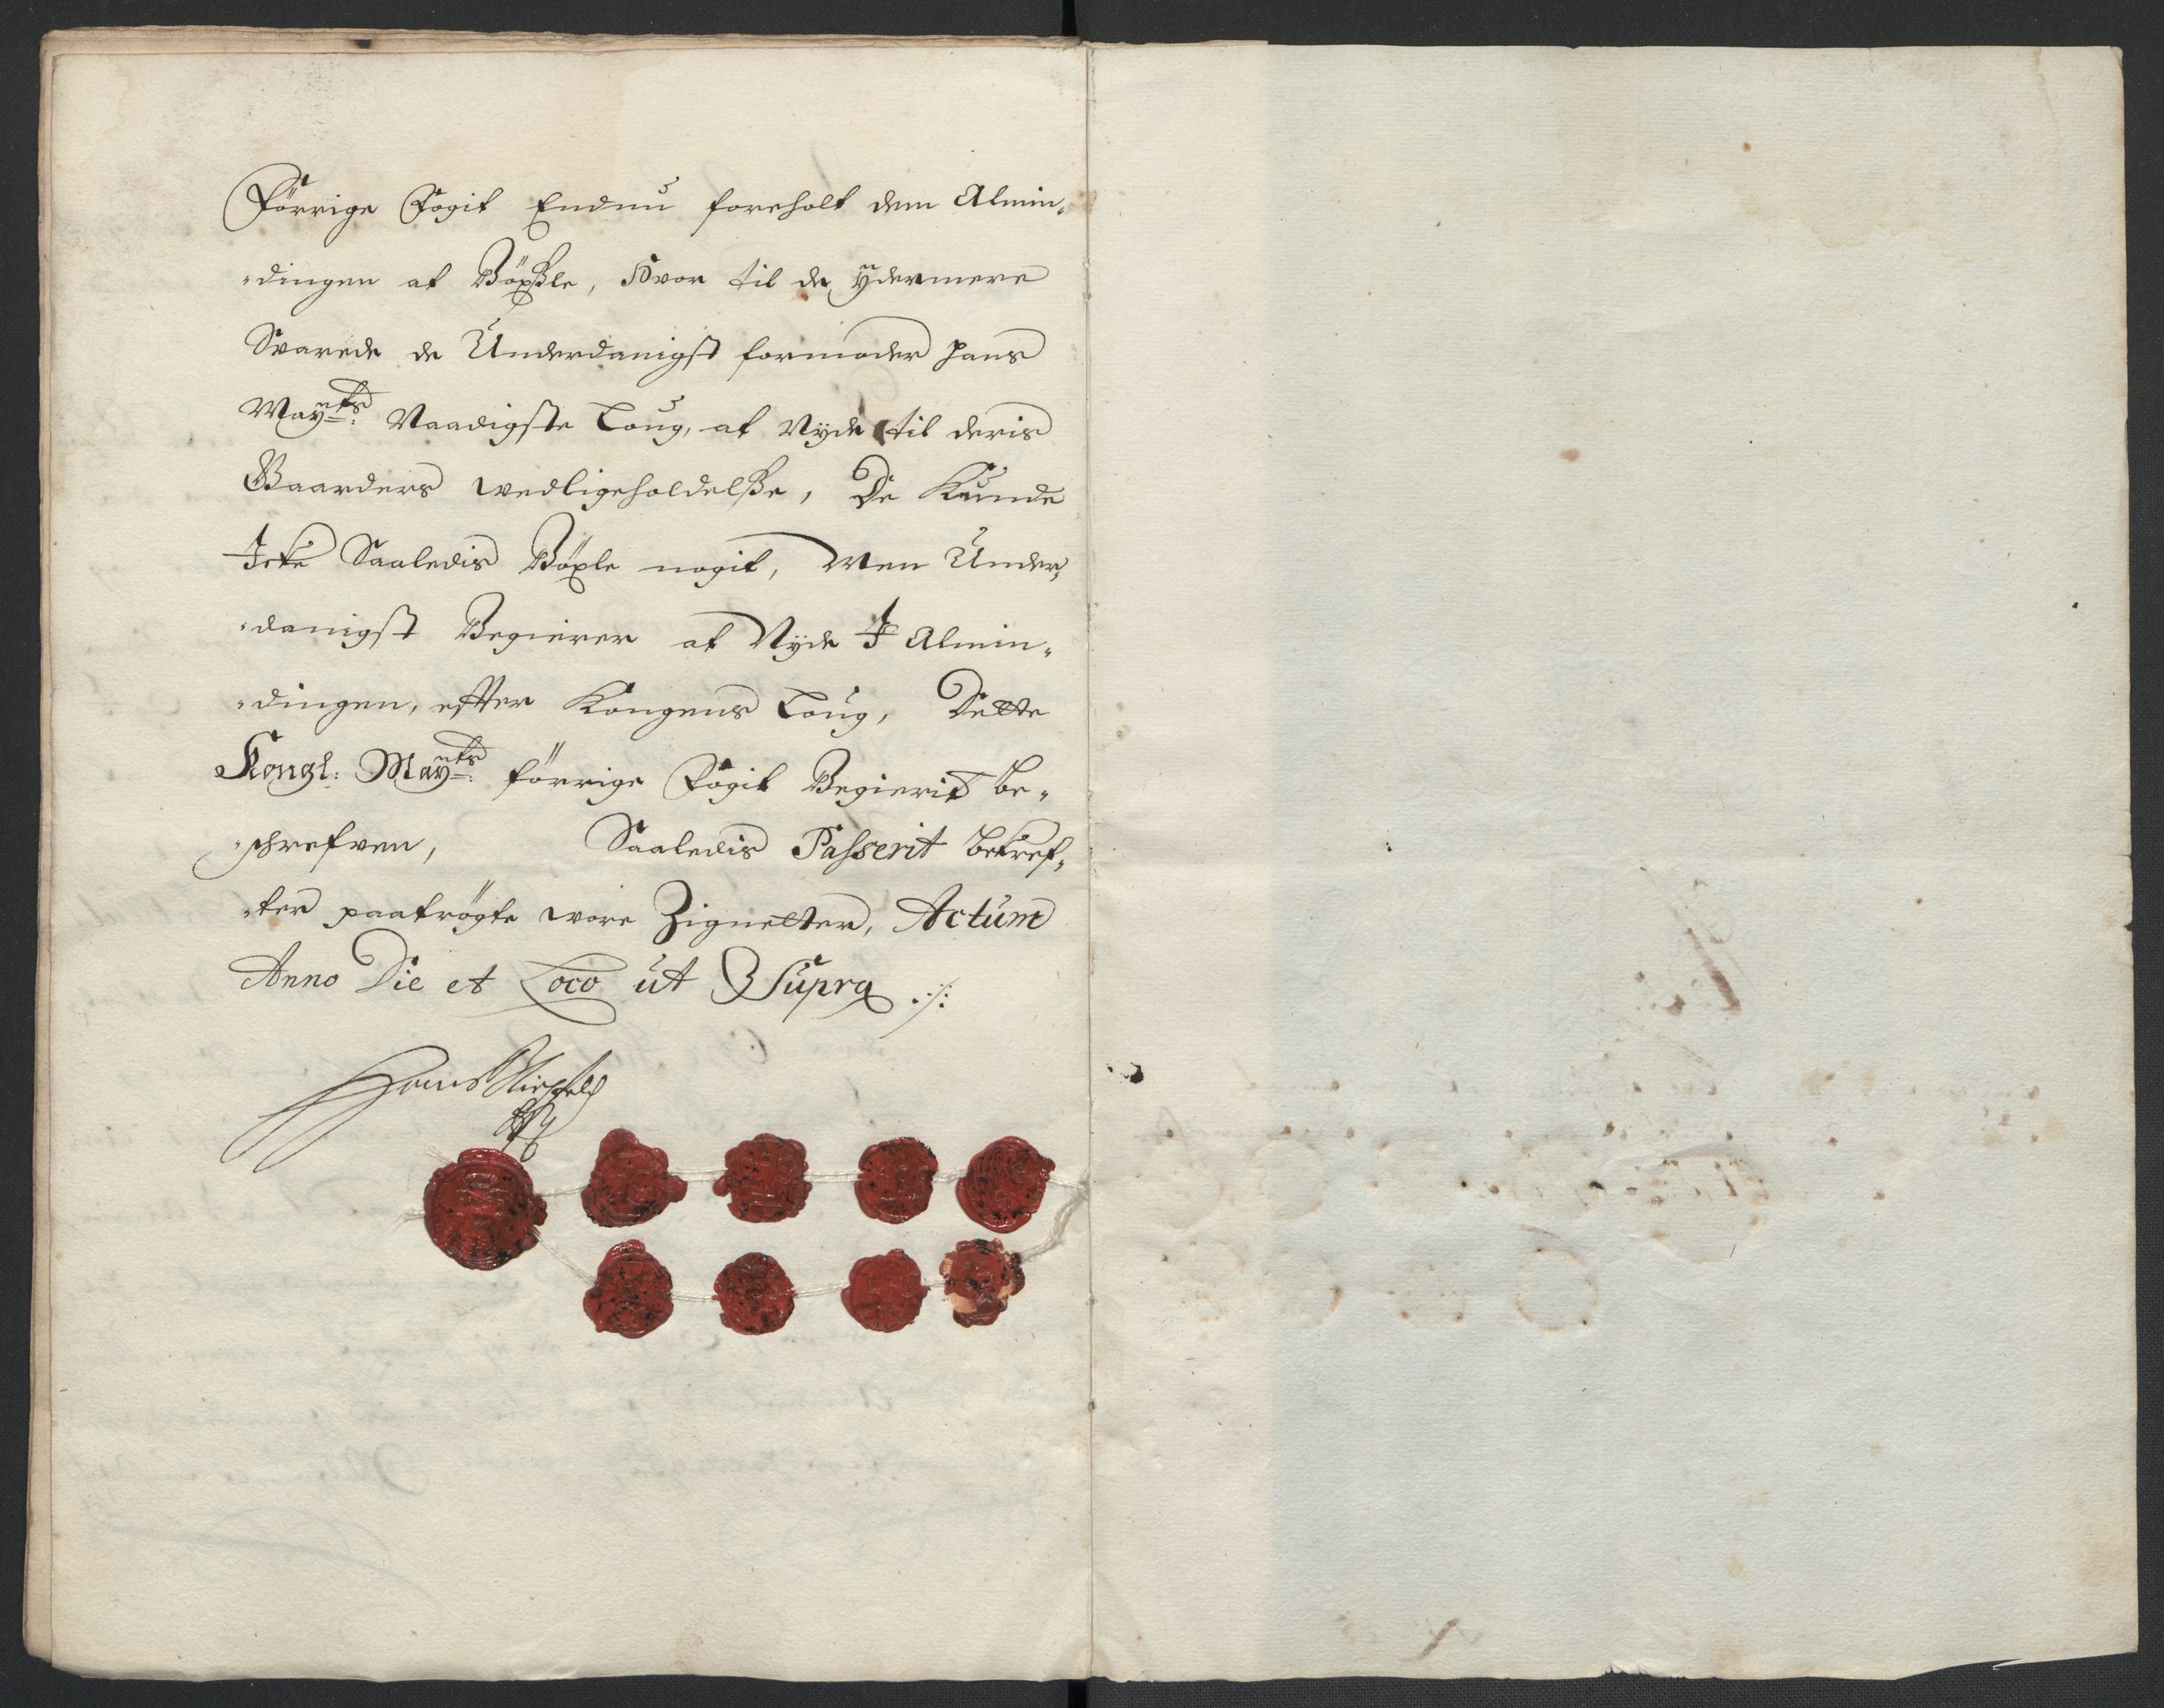 Förrige Fogit Endnu foreholt dem Almin„
„dingen at Böxle, Hvor til de ÿdermere
Svarede de Underdanigst formoder hans
Mayᵗˢ: Naadigste Loug, at Nÿde til deris
Gaarders wedligeholdelße, De Kunde
Icke Saaledis Böxle nogit, Men Under„
„danigst Begierer at Nÿde I Almin„
„dingen, effter Kongens Loug, Dette
Kongl: Mayᵗˢ: förrige Fogit Begierit be„
„schrefven, Saaledis Passerit bekref„
„ter paatrögte wore Zignetter, Actum
Anno Die et Loco ut Supra ./:
Hans